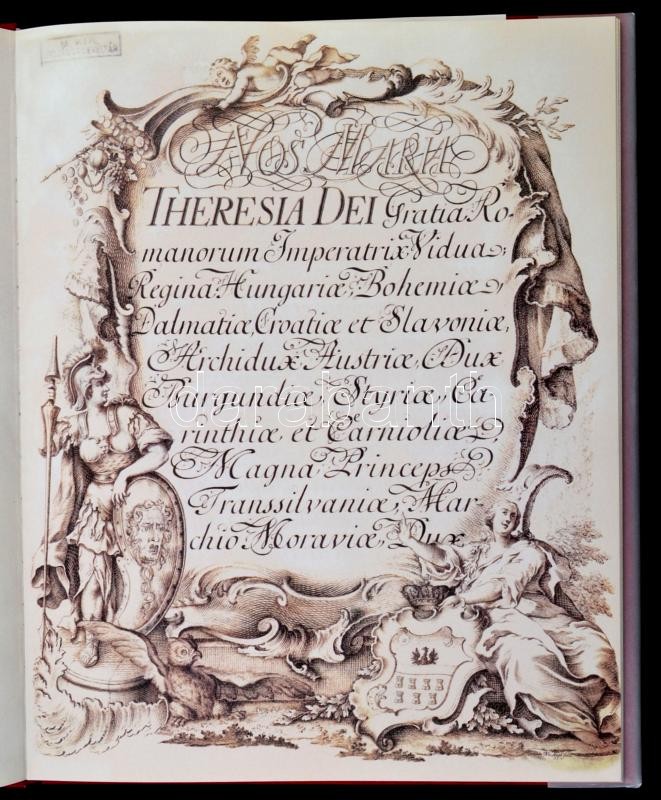 NOS MARIA
THERESIA DEI Gratia Ro-
manorum Imperatrix Vidua,
Regina Hungariæ, Bohemiæ,
Dalmatiæ, Croatiæ et Slavoniæ,
Archidux Austriæ, Dux
Burgundiæ, Styriæ, Ca-
rinthiæ et Carnioliæ,
Magna Princeps
Transsilvaniæ, Mar-
chio Moraviæ, Dux
darabanth